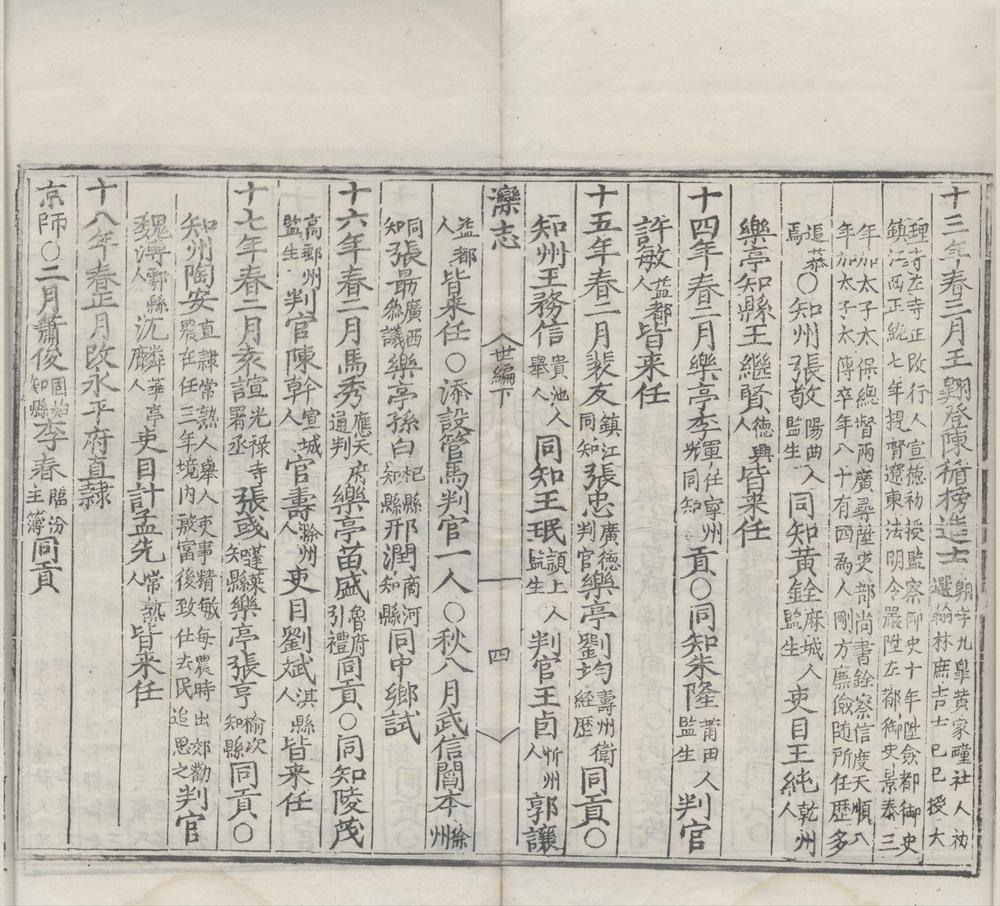 十三年春三月王翺登陳循榜進士翺字九臯黄家疃社人初選翰林庶吉士已巳授大
理寺左寺正改行人宣德初授監察御史十年陞僉都御史鎮江西正統七年提督遼東法明令嚴陞左都御史景泰三
年加太子太保總督兩廣尋陞吏部尚書銓察信度天順八年加太子太傅卒年八十有四爲人剛方廉儉随所任歴多
追慕焉〇知州張敬陽曲人監生同知黄銓麻城人監生吏目王純乾州人
樂亭知縣王繼賢德興人皆来任
十四年春二月樂亭李暉任寧州同知貢〇同知朱隆莆田人監生判官
許敏益都人皆来任
十五年春二月裴友鎮江同知張忠廣德判官樂亭劉均壽州衛經歴同貢〇
知州王務信貴池人舉人同知王珉潁上人監生判官王卣忻州人郭讓
灤志 世編下 四
益都人皆来任〇添設管馬判官一人〇秋八月武信關本徐州
同知張最廣西叅議樂亭孫白杞縣知縣邢潤商河知縣同中鄉試
十六年春二月馬秀應天府通判樂亭苗盛魯府引禮同貢〇同知陵茂
高郵州監生判官陳幹宣城人官壽滁州人吏目劉斌淇縣人皆来任
十七年春二月亥諠光禄寺署丞張彧蓬莱知縣樂亭張亨榆次知縣同貢〇
知州陶安直隷常熟人舉人吏事精敏每農時出郊勸農在任三年境内殷富後致仕去民追思之判官
魏溥鄠縣人沈麟華亭人吏目計孟先常熟人皆来任
十八年春正月改永平府直隷
京師〇二月蕭俊國始知縣李春臨汾主簿同貢